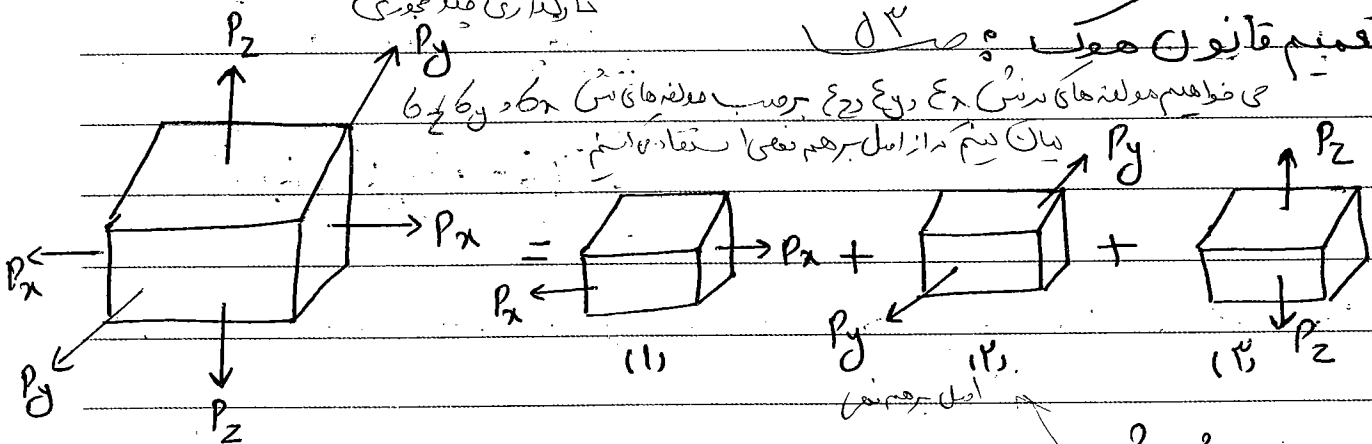 بارگذاری چند محوری
تعمیم قانون هوک :
می خواهیم مولفه های کرنش εx و εy و εz برحسب مولفه های تنش σx و σy و σz
بیان کنیم از اصل برهم نهی استفاده می کنیم.
Pz Py
Px Px = Px Px + Py Py + Pz Pz
Py Pz
(۱) (۲) (۳)
اصل برهم نهی